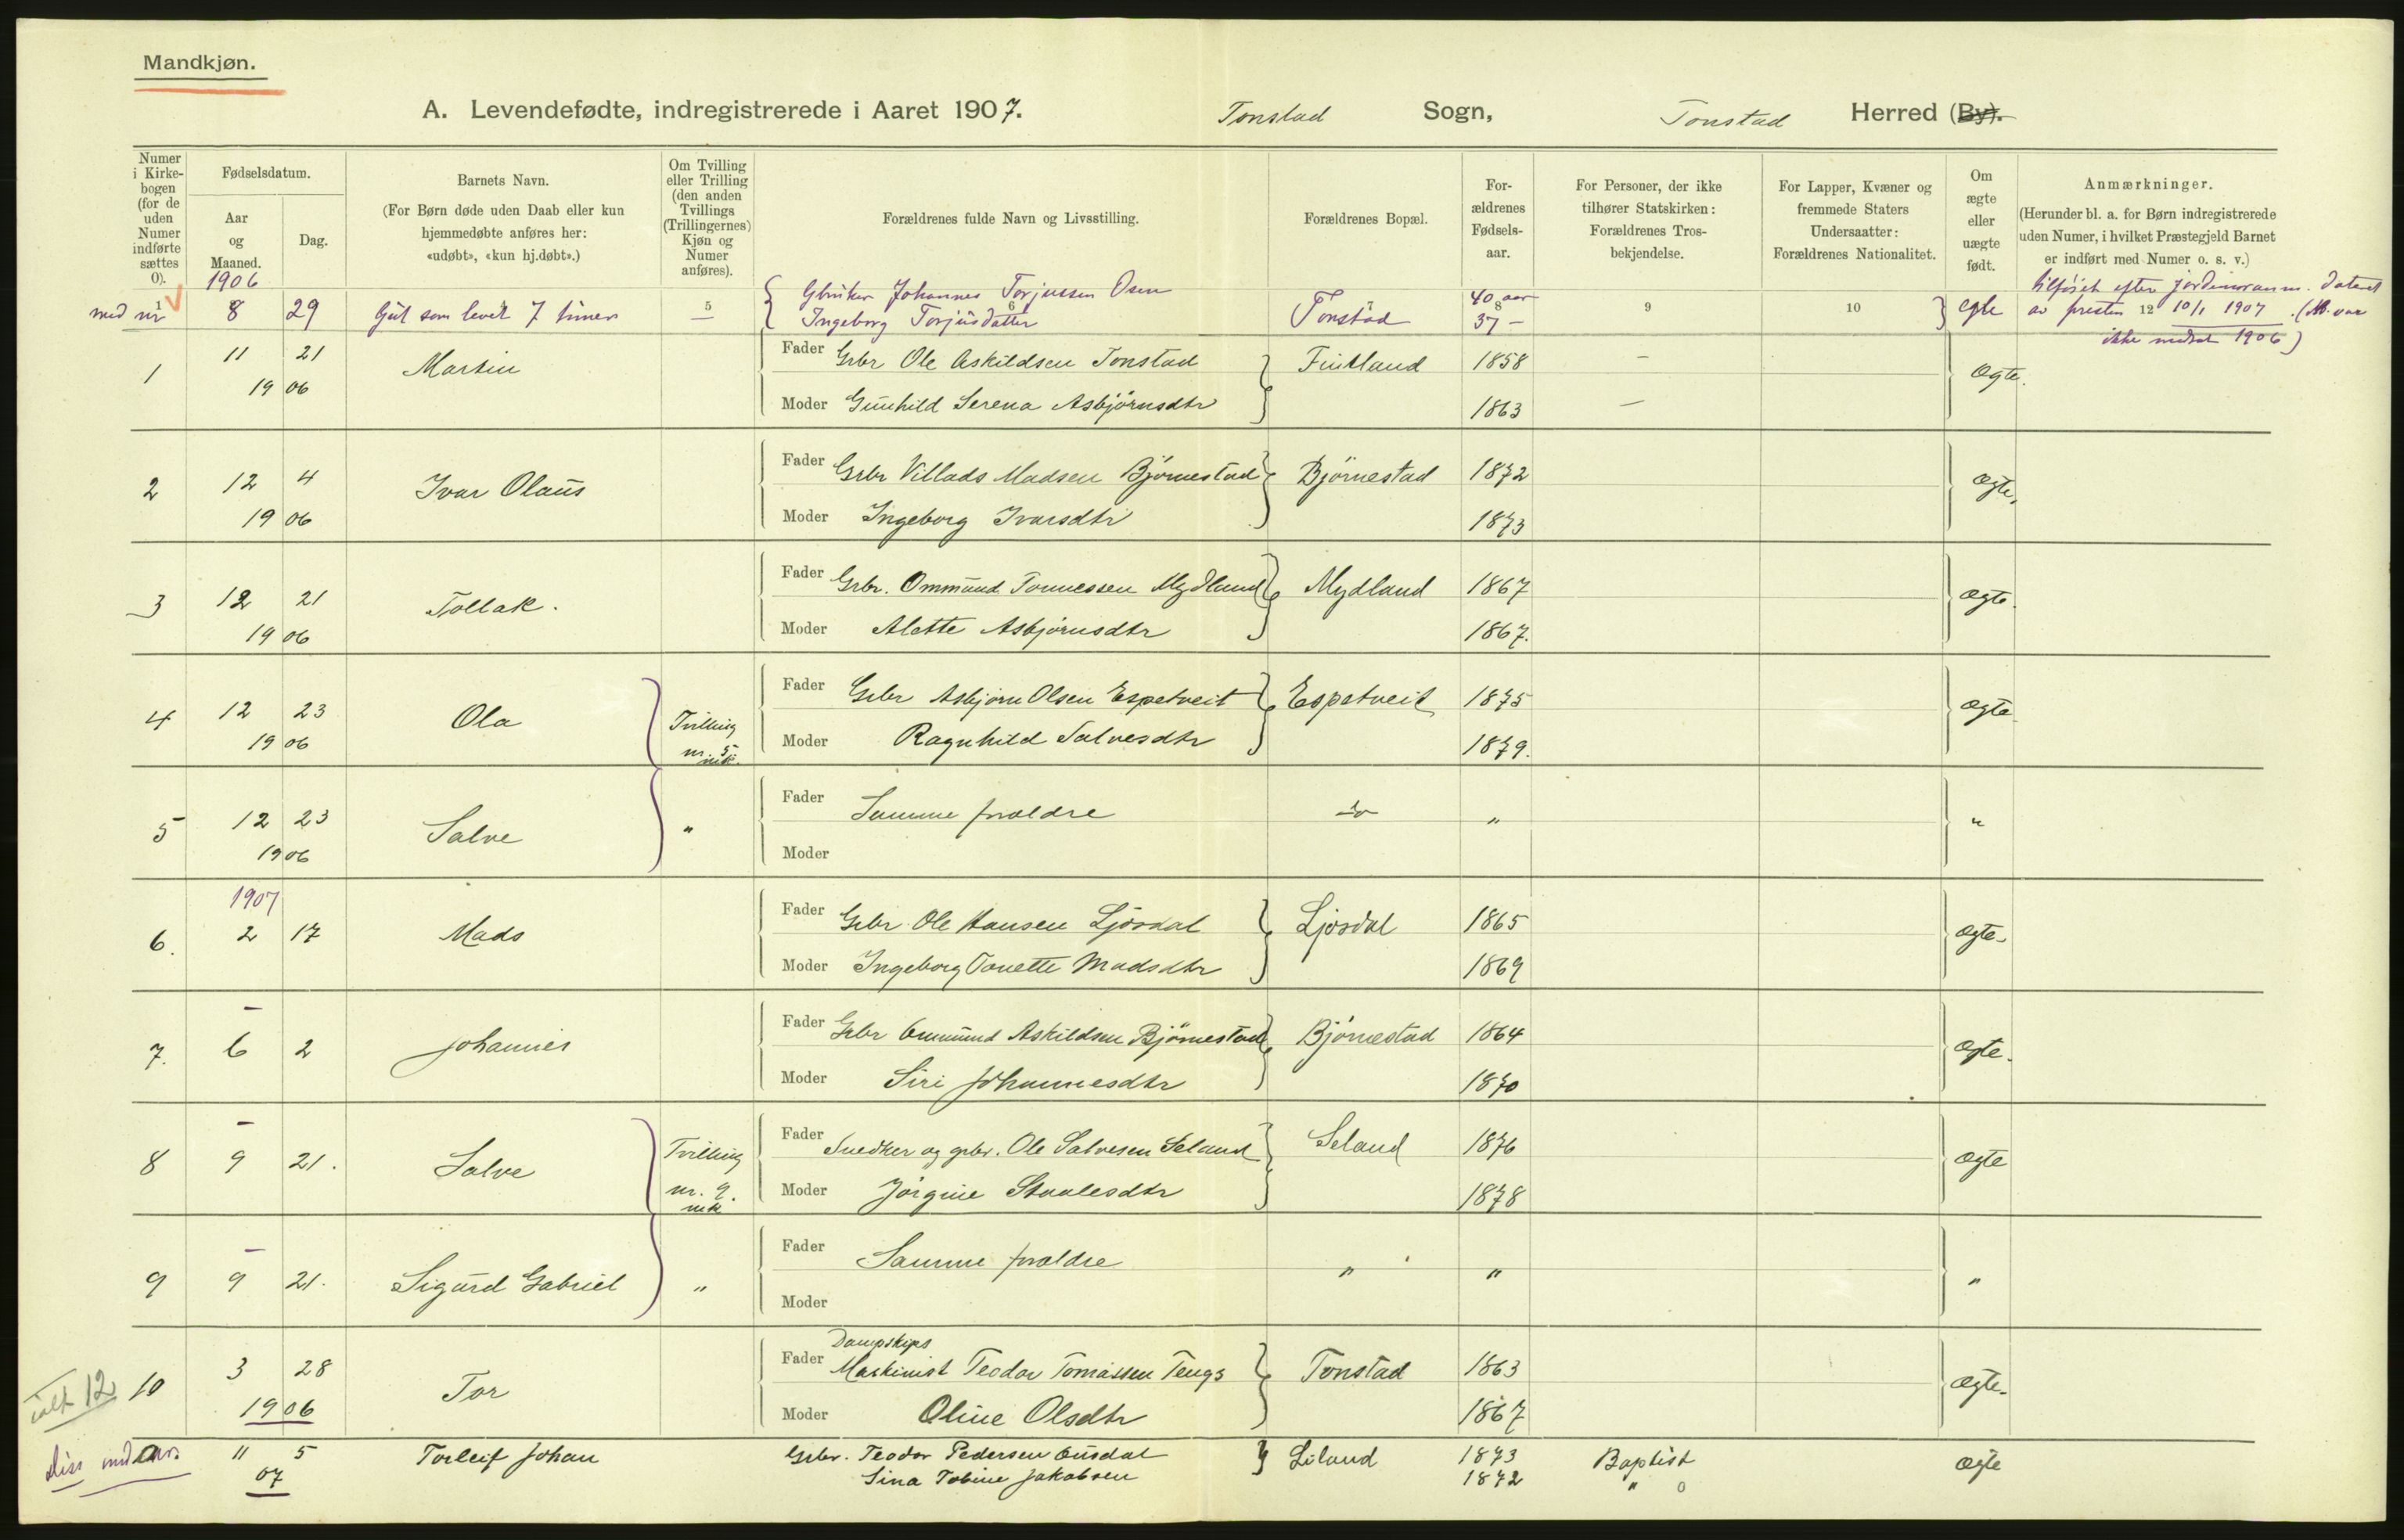 Mandkjøn.
A. Levendefødte, indregistrerede i Aaret 1907. Tonstad Sogn, Tonstad Herred (By).
Numer i Kirkebogen (for de uden Numer indførte sættes 0).
Fødselsdatum.
Aar og Maaned.
Dag.
Barnets Navn.
(For Børn døde uden Daab eller kun hjemmedøbte anføres her: «udøbt», «kun hj.døbt».)
Om Tvilling eller Trilling (den anden Tvillings (Trillingernes) Kjøn og Numer anføres).
Forældrenes fulde Navn og Livsstilling.
Forældrenes Bopæl.
Forældrenes Fødselsaar.
For Personer, der ikke tilhører Statskirken: Forældrenes Trosbekjendelse.
For Lapper, Kvæner og fremmede Staters Undersaatter: Forældrenes Nationalitet.
Om ægte eller uægte født.
Anmærkninger.
(Herunder bl. a. for Børn indregistrerede uden Numer, i hvilket Præstegjeld Barnet er indført med Numer o. s. v.)
1 5 6 7 8 9 10 12
1906
8 29 Gut som levet 7 timer Gbruker Johannes Torjussen Osen Tonstad 40 aar egte tilføiet efter jordmoranm. dateret
Ingeborg Torjusdatter 37 – av presten 10/1 1907. (M. var
ikke medtat 1906)
1 11 21 Martin Fader Grbr Ole Askildsen Tonstad Fintland 1858 – Ægte.
1906 Moder Gunhild Serena Asbjørnsdtr 1863 –
2 12 4 Ivar Olaus Fader Grbr Villads Madsen Bjørnestad Bjørnestad 1872 Ægte.
1906 Moder Ingeborg Ivarsdtr 1873
3 12 21 Tollak. Fader Grbr. Ommund Tonnessen Mydland Mydland 1867 Ægte.
1906 Moder Alette Asbjørnsdtr 1867.
4 12 23 Ola Tvilling Fader Grbr Asbjørn Olsen Espetveit Espetveit 1875 Ægte
1906 nr. 5 mk. Moder Ragnhild Salvesdtr 1879.
5 12 23 Salve " Fader Samme forældre do " "
1906 Moder
1907
6. 2 17 Mads Fader Grbr Ole Hansen Ljosdal Ljosdal 1865 Ægte.
Moder Ingeborg Tonette Madsdtr 1869
–
7. 6 2 Johannes Fader Grbr Ommund Askildsen Bjørnestad Bjørnestad 1864 Ægte.
Moder Siri Johannesdtr 1870
–
8 9 21. Salve Tvilling Fader Snedker og grbr. Ole Salvesen Seland Seland 1876 Ægte
nr. 9. mk Moder Jørgine Staalesdtr 1878
–
9 9 21. Sigurd Gabriel " Fader Samme forældre " " "
Moder
Dampskips
ialt 12 10 3 28 Tor Fader Maskinist Teodor Tomassen Tengs Tonstad 1863 Ægte.
1906 Moder Oline Olsdtr 1867
11 5 Torleif Johan Grbr. Teodor Pedersen Ousdal Liland 1873 Baptist Ægte
07 Sina Tobine Jakobsen 1872 " 0